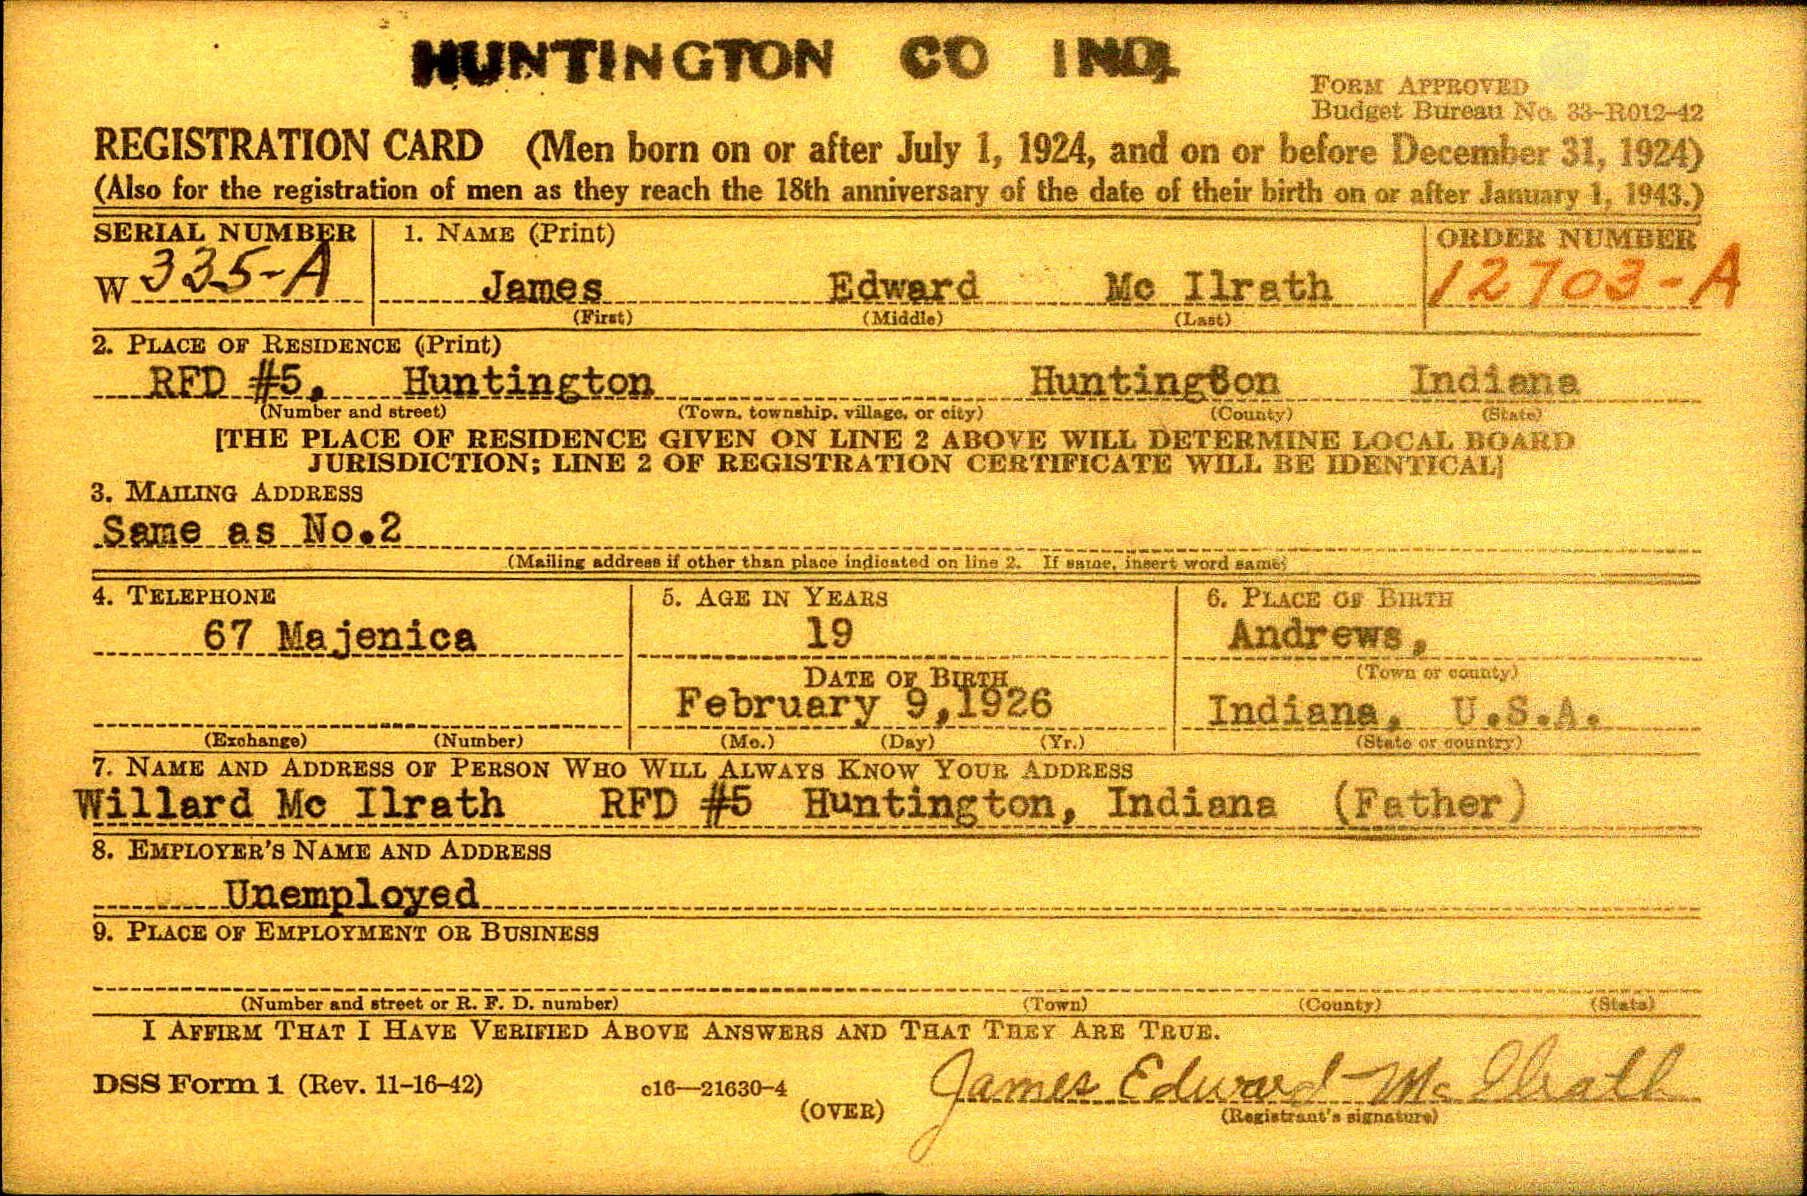 HUNTINGTON CO IND.
FORM APPROVED
Budget Bureau No. 33-R012-42
REGISTRATION CARD (Men born on or after July 1, 1924, and on or before December 31, 1924)
(Also for the registration of men as they reach the 18th anniversary of the date of their birth on or after January 1, 1943.)
SERIAL NUMBER 1. NAME (Print) ORDER NUMBER
W 335-A James Edward Mc Ilrath 12703-A
(First) (Middle) (Last)
2. PLACE OF RESIDENCE (Print)
RFD #5, Huntington Huntington Indiana
(Number and street) (Town, township, village, or city) (County) (State)
[THE PLACE OF RESIDENCE GIVEN ON LINE 2 ABOVE WILL DETERMINE LOCAL BOARD
JURISDICTION; LINE 2 OF REGISTRATION CERTIFICATE WILL BE IDENTICAL]
3. MAILING ADDRESS
Same as No.2
(Mailing address if other than place indicated on line 2. If same, insert word same)
4. TELEPHONE 5. AGE IN YEARS 6. PLACE OF BIRTH
67 Majenica 19 Andrews,
DATE OF BIRTH (Town or county)
February 9,1926 Indiana, U.S.A.
(Exchange) (Number) (Mo.) (Day) (Yr.) (State or country)
7. NAME AND ADDRESS OF PERSON WHO WILL ALWAYS KNOW YOUR ADDRESS
Willard Mc Ilrath RFD #5 Huntington, Indiana (Father)
8. EMPLOYER'S NAME AND ADDRESS
Unemployed
9. PLACE OF EMPLOYMENT OR BUSINESS
(Number and street or R. F. D. number) (Town) (County) (State)
I AFFIRM THAT I HAVE VERIFIED ABOVE ANSWERS AND THAT THEY ARE TRUE.
DSS Form 1 (Rev. 11-16-42) c16—21630-4 James Edward Mc Ilrath
(OVER) (Registrant's signature)